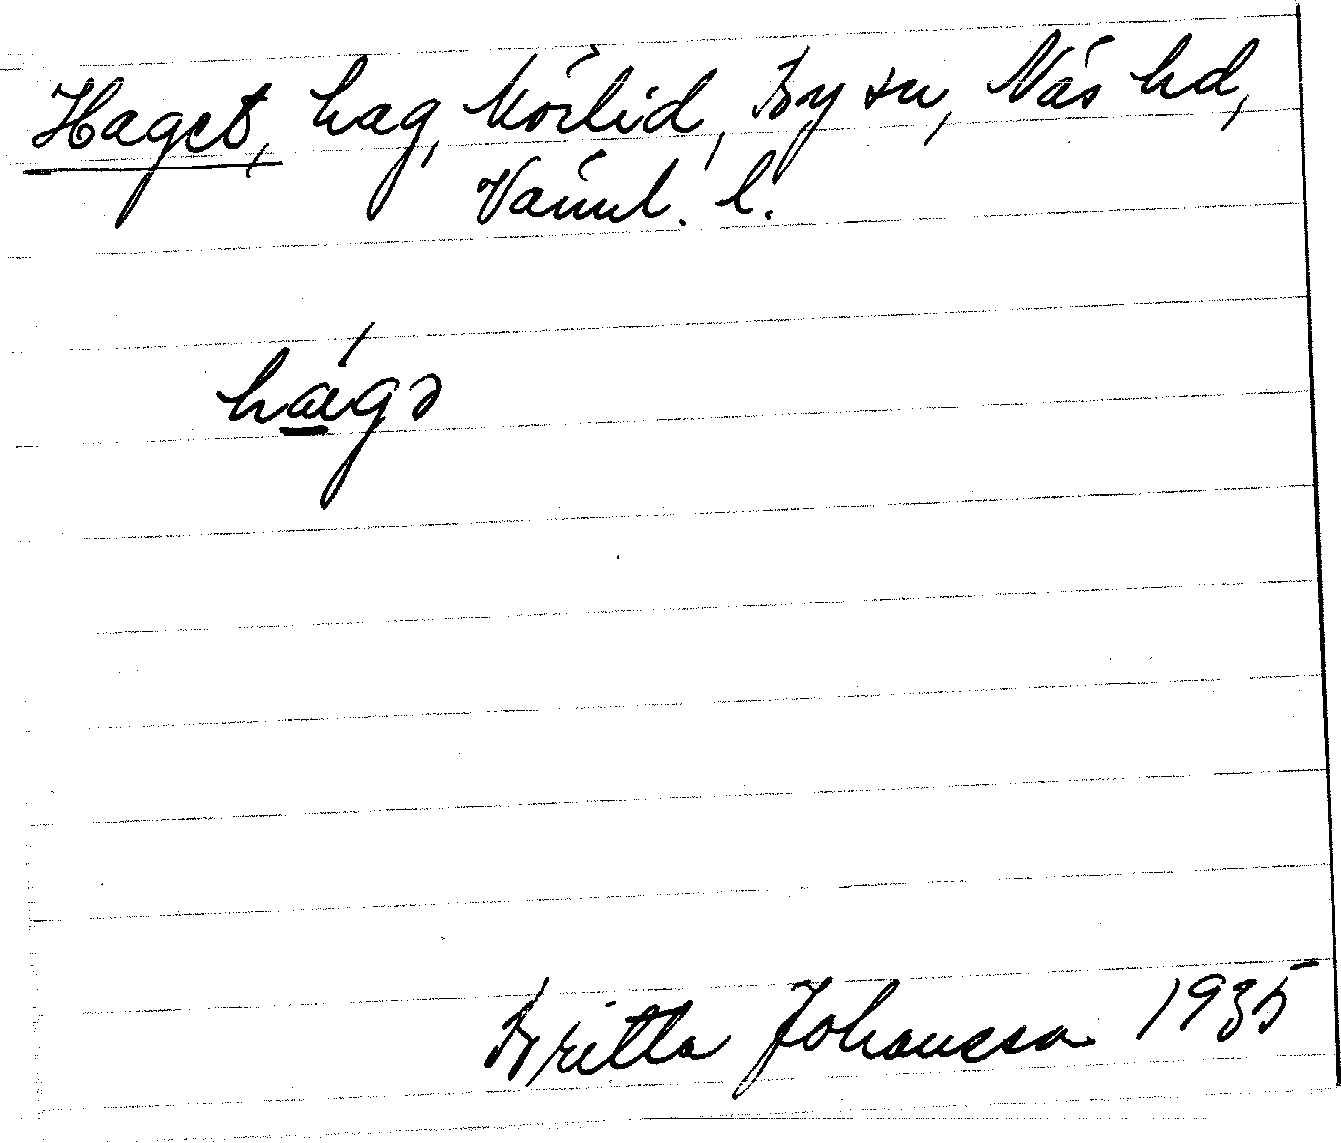 Haget, hag, Mörlid, By sn, Näs hd,
Värml. l.
hágə
Britta Johansson 1935